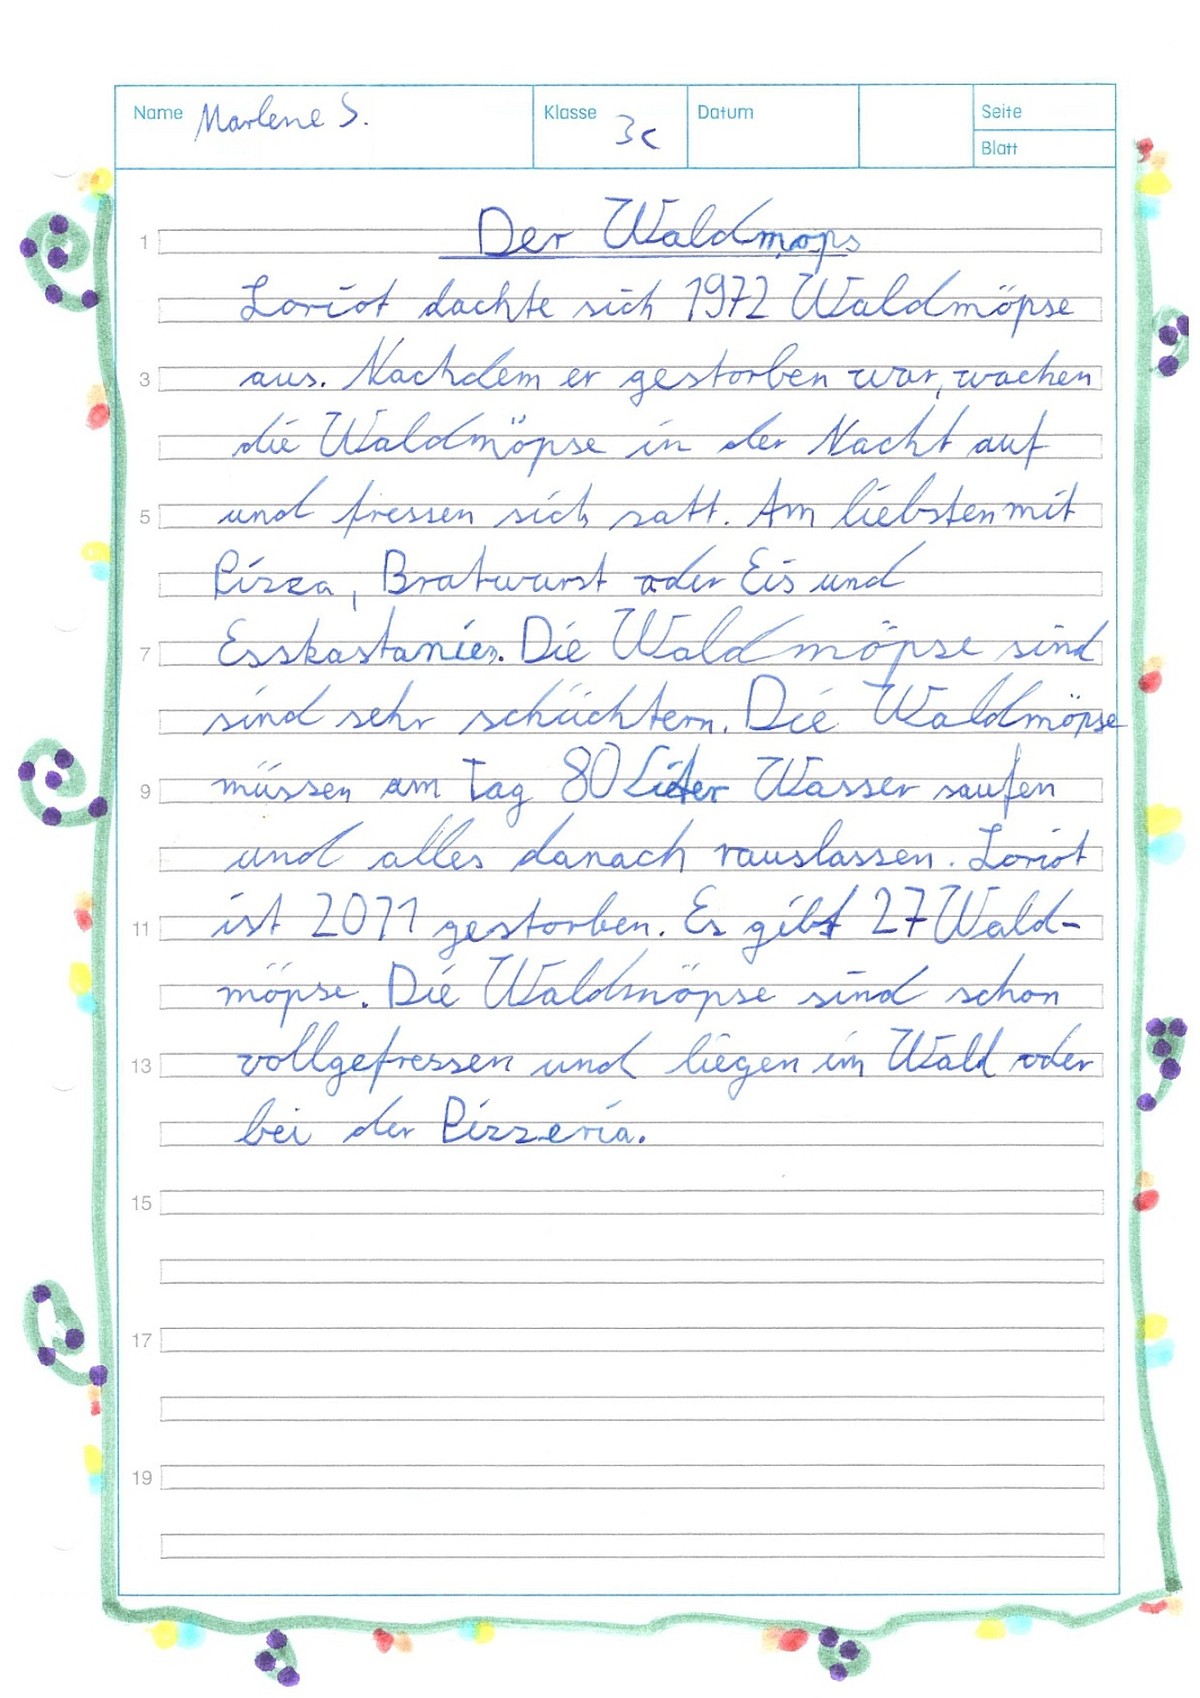 Name Marlene S. Klasse 3c Datum Seite
Blatt
1 Der Waldmops
Loriot dachte sich 1972 Waldmöpse
3 aus. Nachdem er gestorben war, wachen
die Waldmöpse in der Nacht auf
5 und fressen sich satt. Am liebsten mit
Pizza, Bratwurst oder Eis und
7 Esskastanien. Die Waldmöpse sind
sind sehr schüchtern. Die Waldmöpse
9 müssen am Tag 80 Liter Wasser saufen
und alles danach rauslassen. Loriot
11 ist 2011 gestorben. Es gibt 27 Wald-
möpse. Die Waldmöpse sind schon
13 vollgefressen und liegen im Wald oder
bei der Pizzeria.
15
17
19